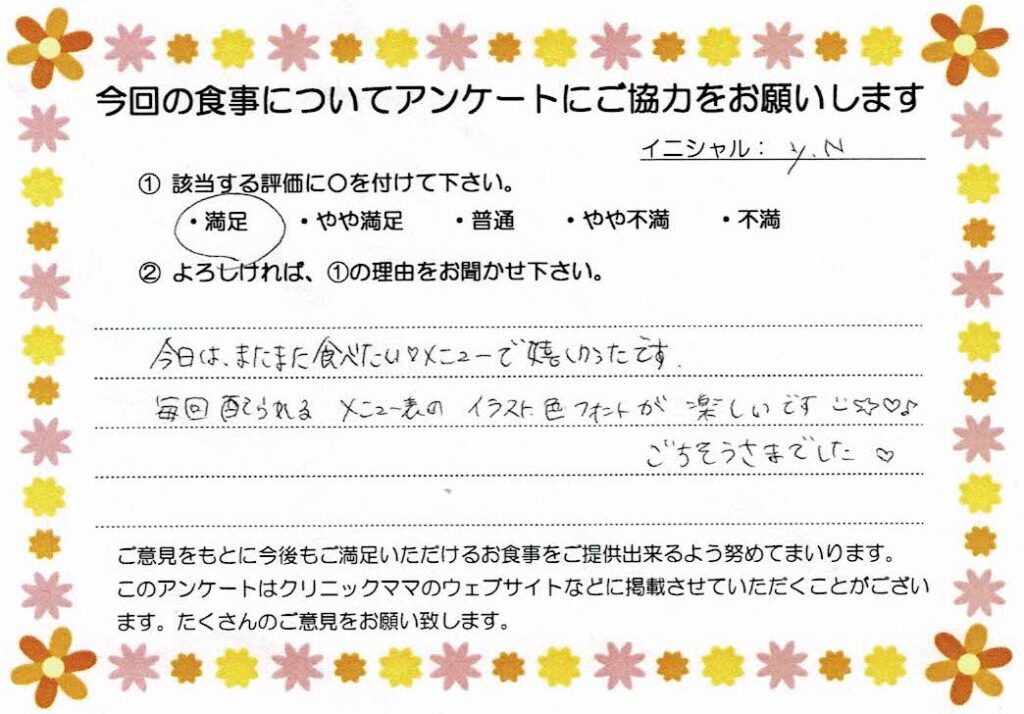 今回の食事についてアンケートにご協力をお願いします
イニシャル： y.N
① 該当する評価に〇を付けて下さい。
・満足 ・やや満足 ・普通 ・やや不満 ・不満
② よろしければ、①の理由をお聞かせ下さい。
今日は、またまた食べたい♡メニューで嬉しかったです.
毎回配られるメニュー表の イラスト色フォントが 楽しいです ☆♡♪
ごちそうさまでした ♡
ご意見をもとに今後もご満足いただけるお食事をご提供出来るよう努めてまいります。
このアンケートはクリニックママのウェブサイトなどに掲載させていただくことがござい
ます。たくさんのご意見をお願い致します。